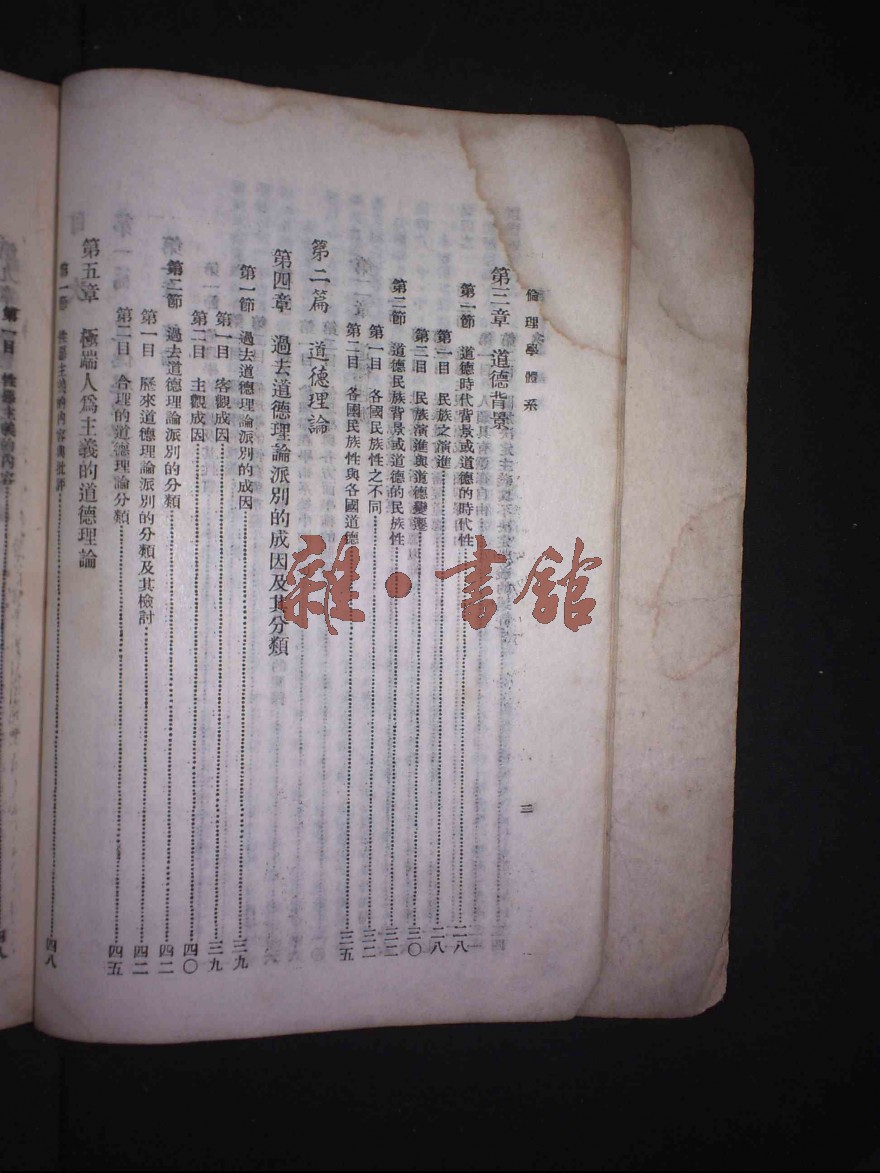 倫理學體系
二
第三章 道德背景
第一節 道德時代背景或道德的時代性 二八
第一目 民族之演進 二八
第二目 民族演進與道德變遷 三〇
第二節 道德民族背景或道德的民族性 三二
第一目 各國民族性之不同 三二
第二目 各國民族性與各國道德 三五
第二篇 道德理論
第四章 過去道德理論派別的成因及其分類
第一節 過去道德理論派別的成因 三九
第一目 客觀成因 三九
第二目 主觀成因 四〇
第二節 過去道德理論派別的分類 四二
第一目 歷來道德理論派別的分類及其檢討 四二
第二目 合理的道德理論分類 四五
第五章 極端人為主義的道德理論
第一節 性惡主義的內容與批評 四八
第一目 性惡主義的內容 四八
雜·書館